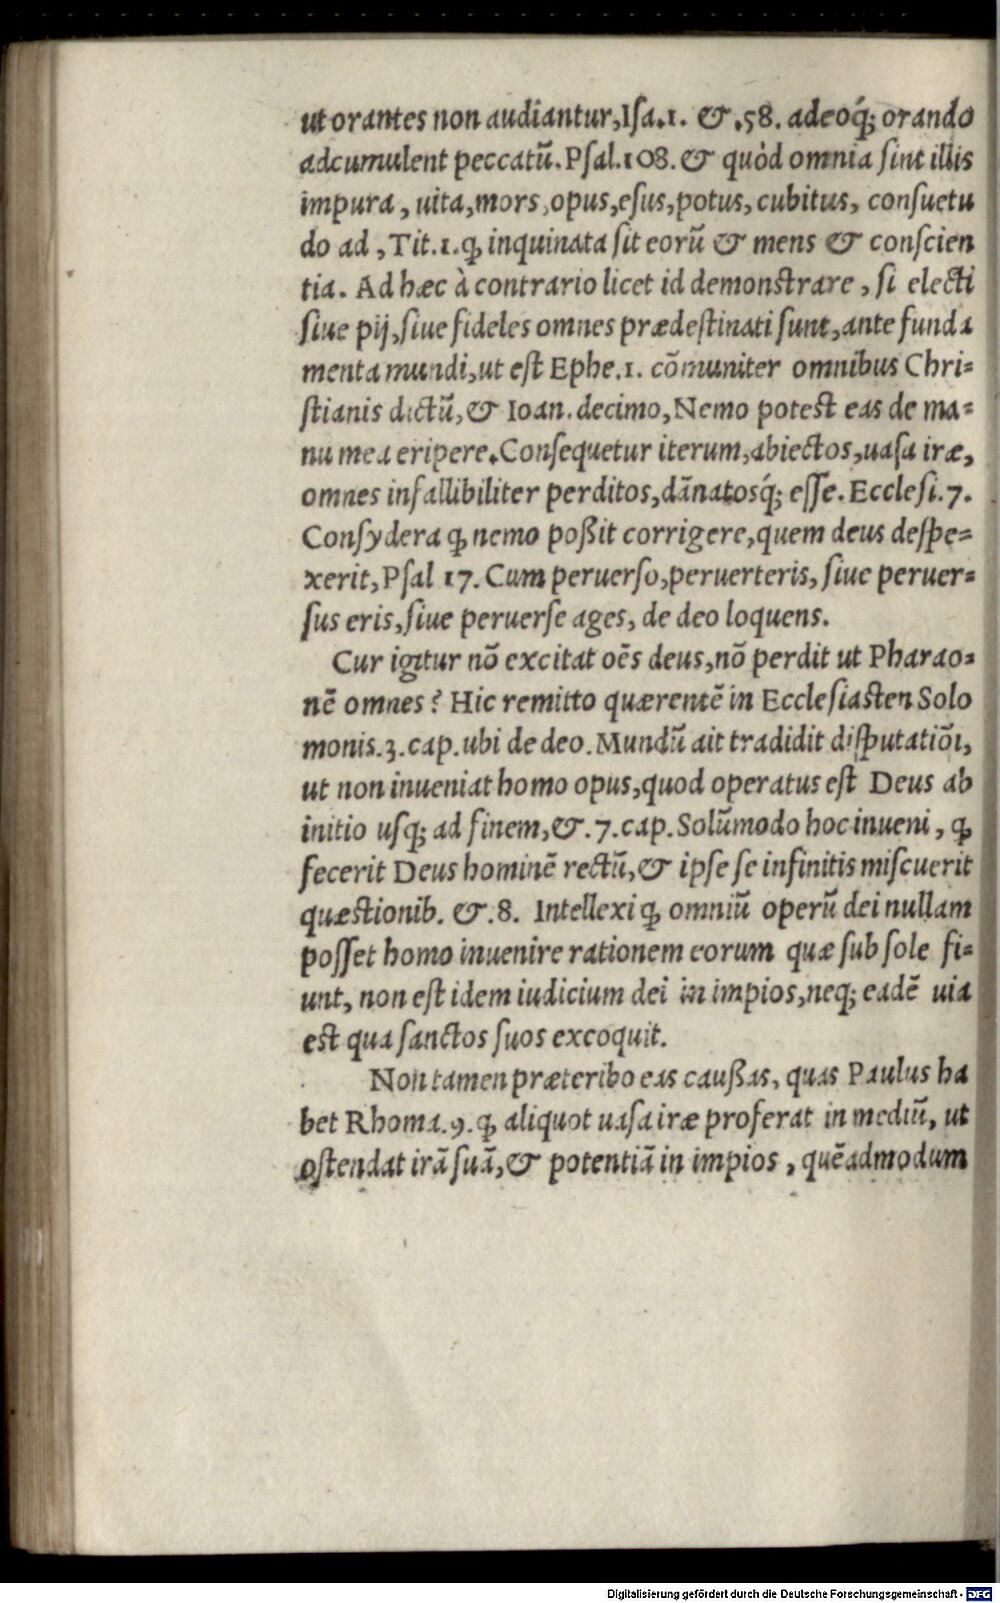 ut orantes non audiantur, Iſa.1. & .58. adeoq́; orando
adcumulent peccatū. Pſal.108. & quòd omnia ſint illis
impura, uita, mors, opus, eſus, potus, cubitus, conſuetu
do ad, Tit.1. ꝙ inquinata ſit eorū & mens & conſcien
tia. Ad hæc à contrario licet id demonſtrare, ſi electi
ſiue pij, ſiue fideles omnes prædeſtinati ſunt, ante funda
menta mundi, ut eſt Ephe.1. cōmuniter omnibus Chri=
ſtianis dictū, & Ioan. decimo, Nemo poteſt eas de ma=
nu mea eripere. Conſequetur iterum, abiectos, uaſa iræ,
omnes infallibiliter perditos, dānatosq́; eſſe. Eccleſi.7.
Conſydera ꝙ nemo poßit corrigere, quem deus deſpe=
xerit, Pſal 17. Cum peruerſo, peruerteris, ſiue peruer=
ſus eris, ſiue peruerſe ages, de deo loquens.
Cur igitur nō excitat oēs deus, nō perdit ut Pharao=
nē omnes? Hic remitto quærentē in Eccleſiaſten Solo
monis.3. cap. ubi de deo. Mundū ait tradidit diſputatiōi,
ut non inueniat homo opus, quod operatus eſt Deus ab
initio uſq; ad finem, &.7. cap. Solūmodo hoc inueni, ꝙ
fecerit Deus hominē rectū, & ipſe ſe infinitis miſcuerit
quæſtionib. &.8. Intellexi ꝙ omniū operū dei nullam
poſſet homo inuenire rationem eorum quæ ſub ſole fi=
unt, non eſt idem iudicium dei in impios, neq; eadē uia
eſt qua ſanctos ſuos excoquit.
Non tamen præteribo eas cauſſas, quas Paulus ha
bet Rhoma.9. ꝙ aliquot uaſa iræ proferat in mediū, ut
oſtendat irā ſuā, & potentiā in impios, quēadmodum
Digitalisierung gefördert durch die Deutsche Forschungsgemeinschaft - DFG